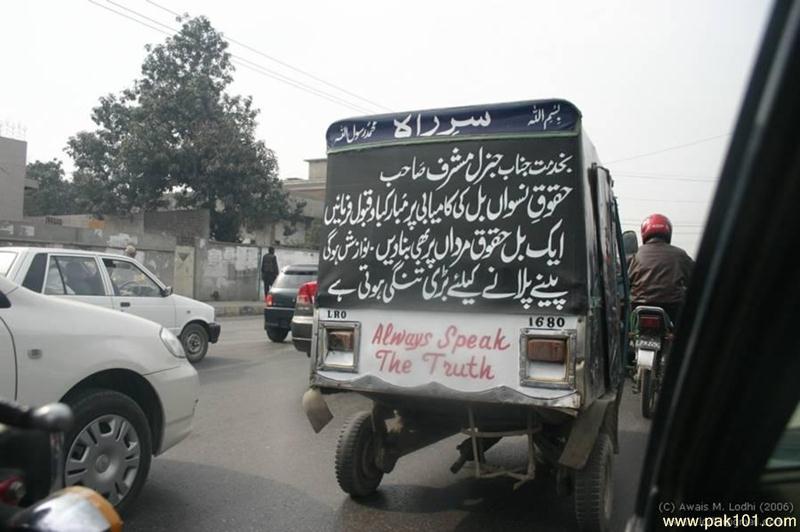 بسم اللہ سرِ راہ محمد رسول اللہ
بخدمت جناب جنرل مشرف صاحب
حقوقِ نسواں بل کی کامیابی پر مبارکباد قبول فرمائیں
ایک بل حقوقِ مرداں پر بھی بنا دیں۔ نوازش ہوگی
پینے پلانے کیلئے بڑی تنگی ہوتی ہے
LRO 1680
Always Speak
The Truth
(C) Awais M. Lodhi (2006)
www.pak101.com